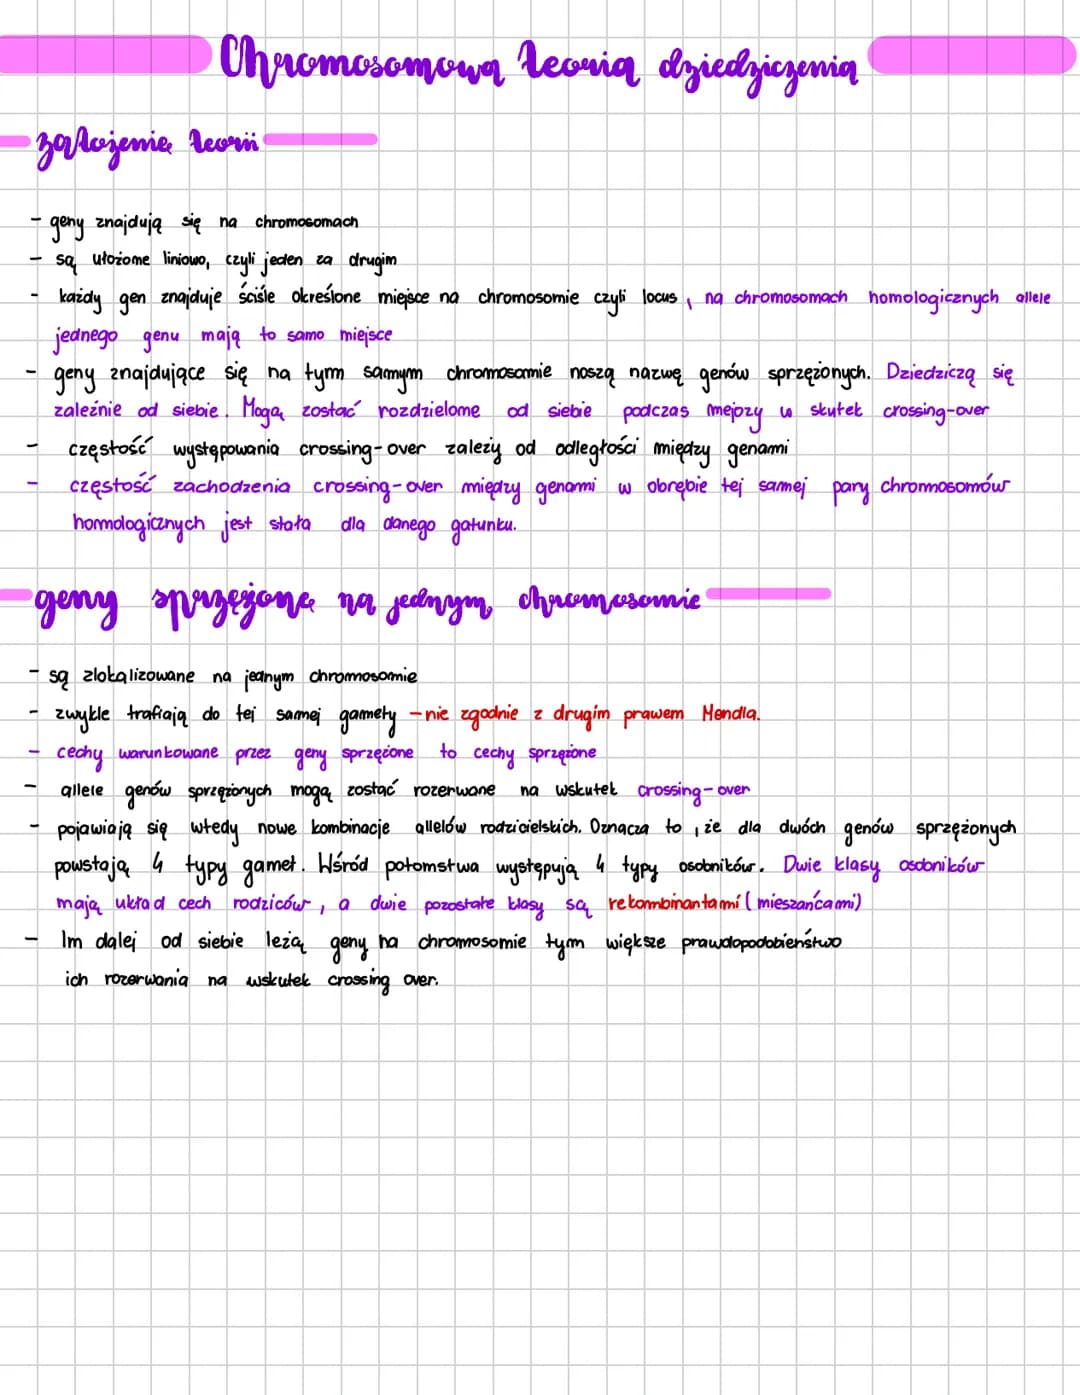 Chromosomowa teoria dziedziczenia
założenie teorii
- geny znajdują się na chromosomach
- są ułożome liniowo, czyli jeden za drugim
- każdy gen znajduje ściśle określone miejsce na chromosomie czyli locus, na chromosomach homologicznych allele
jednego genu mają to samo miejsce
- geny znajdujące się na tym samym chromosomie noszą nazwę genów sprzężonych. Dziedziczą się
zależnie od siebie. Mogą zostać rozdzielome od siebie podczas mejozy w skutek crossing-over
- częstość występowania crossing-over zależy od odległości między genami
- częstość zachodzenia crossing-over między genami w obrębie tej samej pary chromosomów
homologicznych jest stała dla danego gatunku.
geny sprzężone na jednym chromosomie
- są zlokalizowane na jednym chromosomie
- zwykle trafiają do tej samej gamety - nie zgodnie z drugim prawem Mendla.
- cechy warunkowane przez geny sprzężone to cechy sprzężone
- allele genów sprzężonych mogą zostać rozerwane na wskutek crossing-over
- pojawiają się wtedy nowe kombinacje allelów rodzicielskich. Oznacza to, że dla dwóch genów sprzężonych
powstają 4 typy gamet. Wśród potomstwa występują 4 typy osobników. Dwie klasy osobników
mają układ cech rodziców, a dwie pozostałe klasy są rekombinantami (mieszańcami)
- Im dalej od siebie leżą geny na chromosomie tym większe prawdopodobieństwo
ich rozerwania na wskutek crossing over.